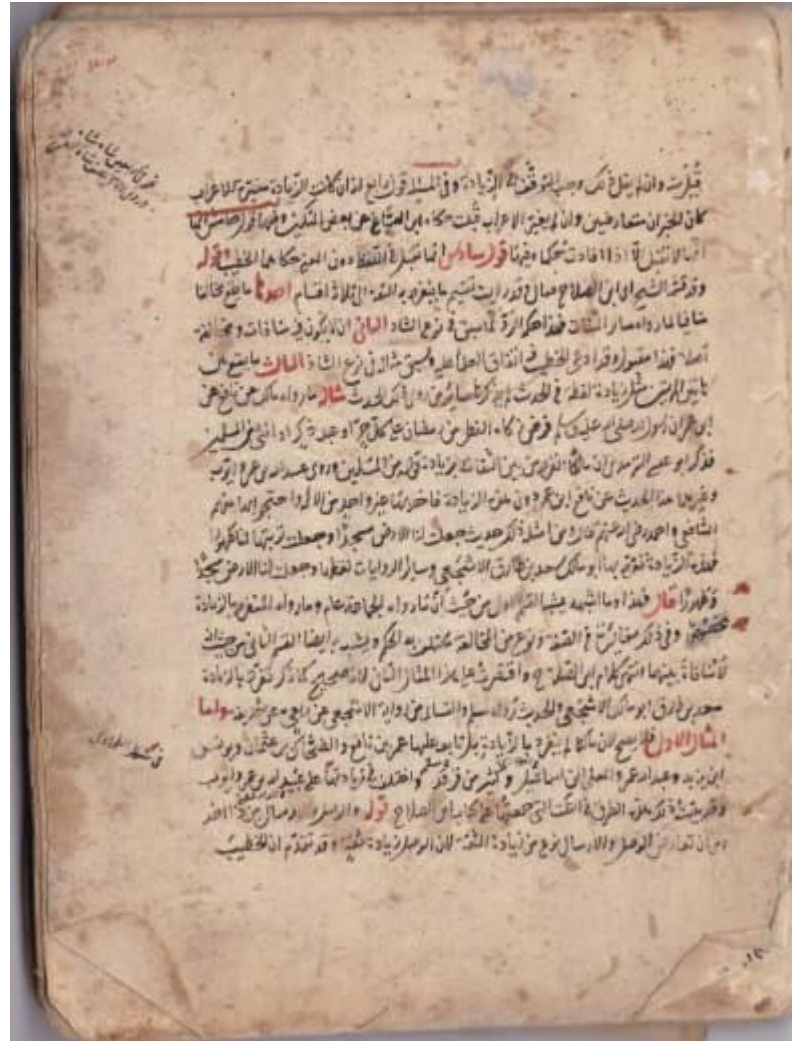 قبلت وان لم يقل ذلك وجب التوقف في الزيادة وفي المسئلة قول رابع انه ان كانت الزيادة مغيرة للاعراب
كان الخبران متعارضين وان لم يغير الاعراب قبلت حكاه ابن الصباغ عن بعض المتكلمين وفيها قول خامس انها
لا تقبل الا اذا افادت حكما وفيها قول سادس انها تقبل في اللفظ دون المعنى حكاهما الخطيب قوله
وقد قسمه الشيخ اي ابن الصلاح فقال قد رايت تقسيم ما ينفرد به الثقة الى ثلاثة اقسام احدها ما يقع مخالفا
منافيا لما رواه ساير الثقات فهذا حكمه الرد كما سبق في نوع الشاذ الثاني ان لا يكون فيه منافاة ومخالفة
اصلا فهذا مقبول وقد ادعى الخطيب فيه اتفاق العلماء عليه وسبق مثاله في نوع الشاذ الثالث ما يقع بين
هاتين المرتبتين مثل زيادة لفظة في الحديث لم يذكرها ساير من روى ذلك الحديث مثاله ما رواه مالك عن نافع عن
ابن عمر ان رسول الله صلى الله عليه وسلم فرض زكاة الفطر من رمضان على كل حر او عبد ذكر او انثى من المسلمين
فذكر ابو عيسى الترمذي ان مالكا تفرد من بين الثقات بزيادة قوله من المسلمين وروى عبيد الله بن عمر وايوب
وغيرهما هذا الحديث عن نافع عن ابن عمر دون هذه الزيادة فاخذ بها غير واحد من الائمة واحتجوا بها منهم
الشافعي واحمد رضي الله عنهم قال ومن امثلة ذلك حديث جعلت لنا الارض مسجدا وجعلت تربتها لنا طهورا
فهذه الزيادة تفرد بها ابو مالك سعد بن طارق الاشجعي وساير الروايات لفظها وجعلت لنا الارض مسجدا
وطهورا قال فهذا وما اشبهه يشبه القسم الاول من حيث ان ما رواه الجماعة عام وما رواه المنفرد بالزيادة
مخصوص وفي ذلك مغايرة في الصفة ونوع من المخالفة يختلف به الحكم ويشبه ايضا القسم الثاني من حيث انه
لا منافاة بينهما انتهى كلام ابن الصلاح واقتصرت على هذا المثال الثاني لانه صحيح كما ذكر تفرد بالزيادة
سعد بن طارق ابو مالك الاشجعي والحديث رواه مسلم والنسائي من رواية الاشجعي عن ربعي عن حذيفة واما
المثال الاول فلا يصح لان مالكا لم ينفرد بالزيادة بل تابعه عليها عمر بن نافع والضحاك بن عثمان ويونس
ابن يزيد وعبد الله بن عمر والمعلى بن اسماعيل وكثير بن فرقد واختلف في زيادتها على عبيد الله بن عمر وايوب
وقد بينت ذلك هذه الطرق في النكت التي جمعتها على كتاب ابن الصلاح قوله والوصل والارسال من ذا اخذ
اي ان تعارض الوصل والارسال نوع من زيادة الثقة لان الوصل زيادة ثقة وقد تقدم ان الخطيب